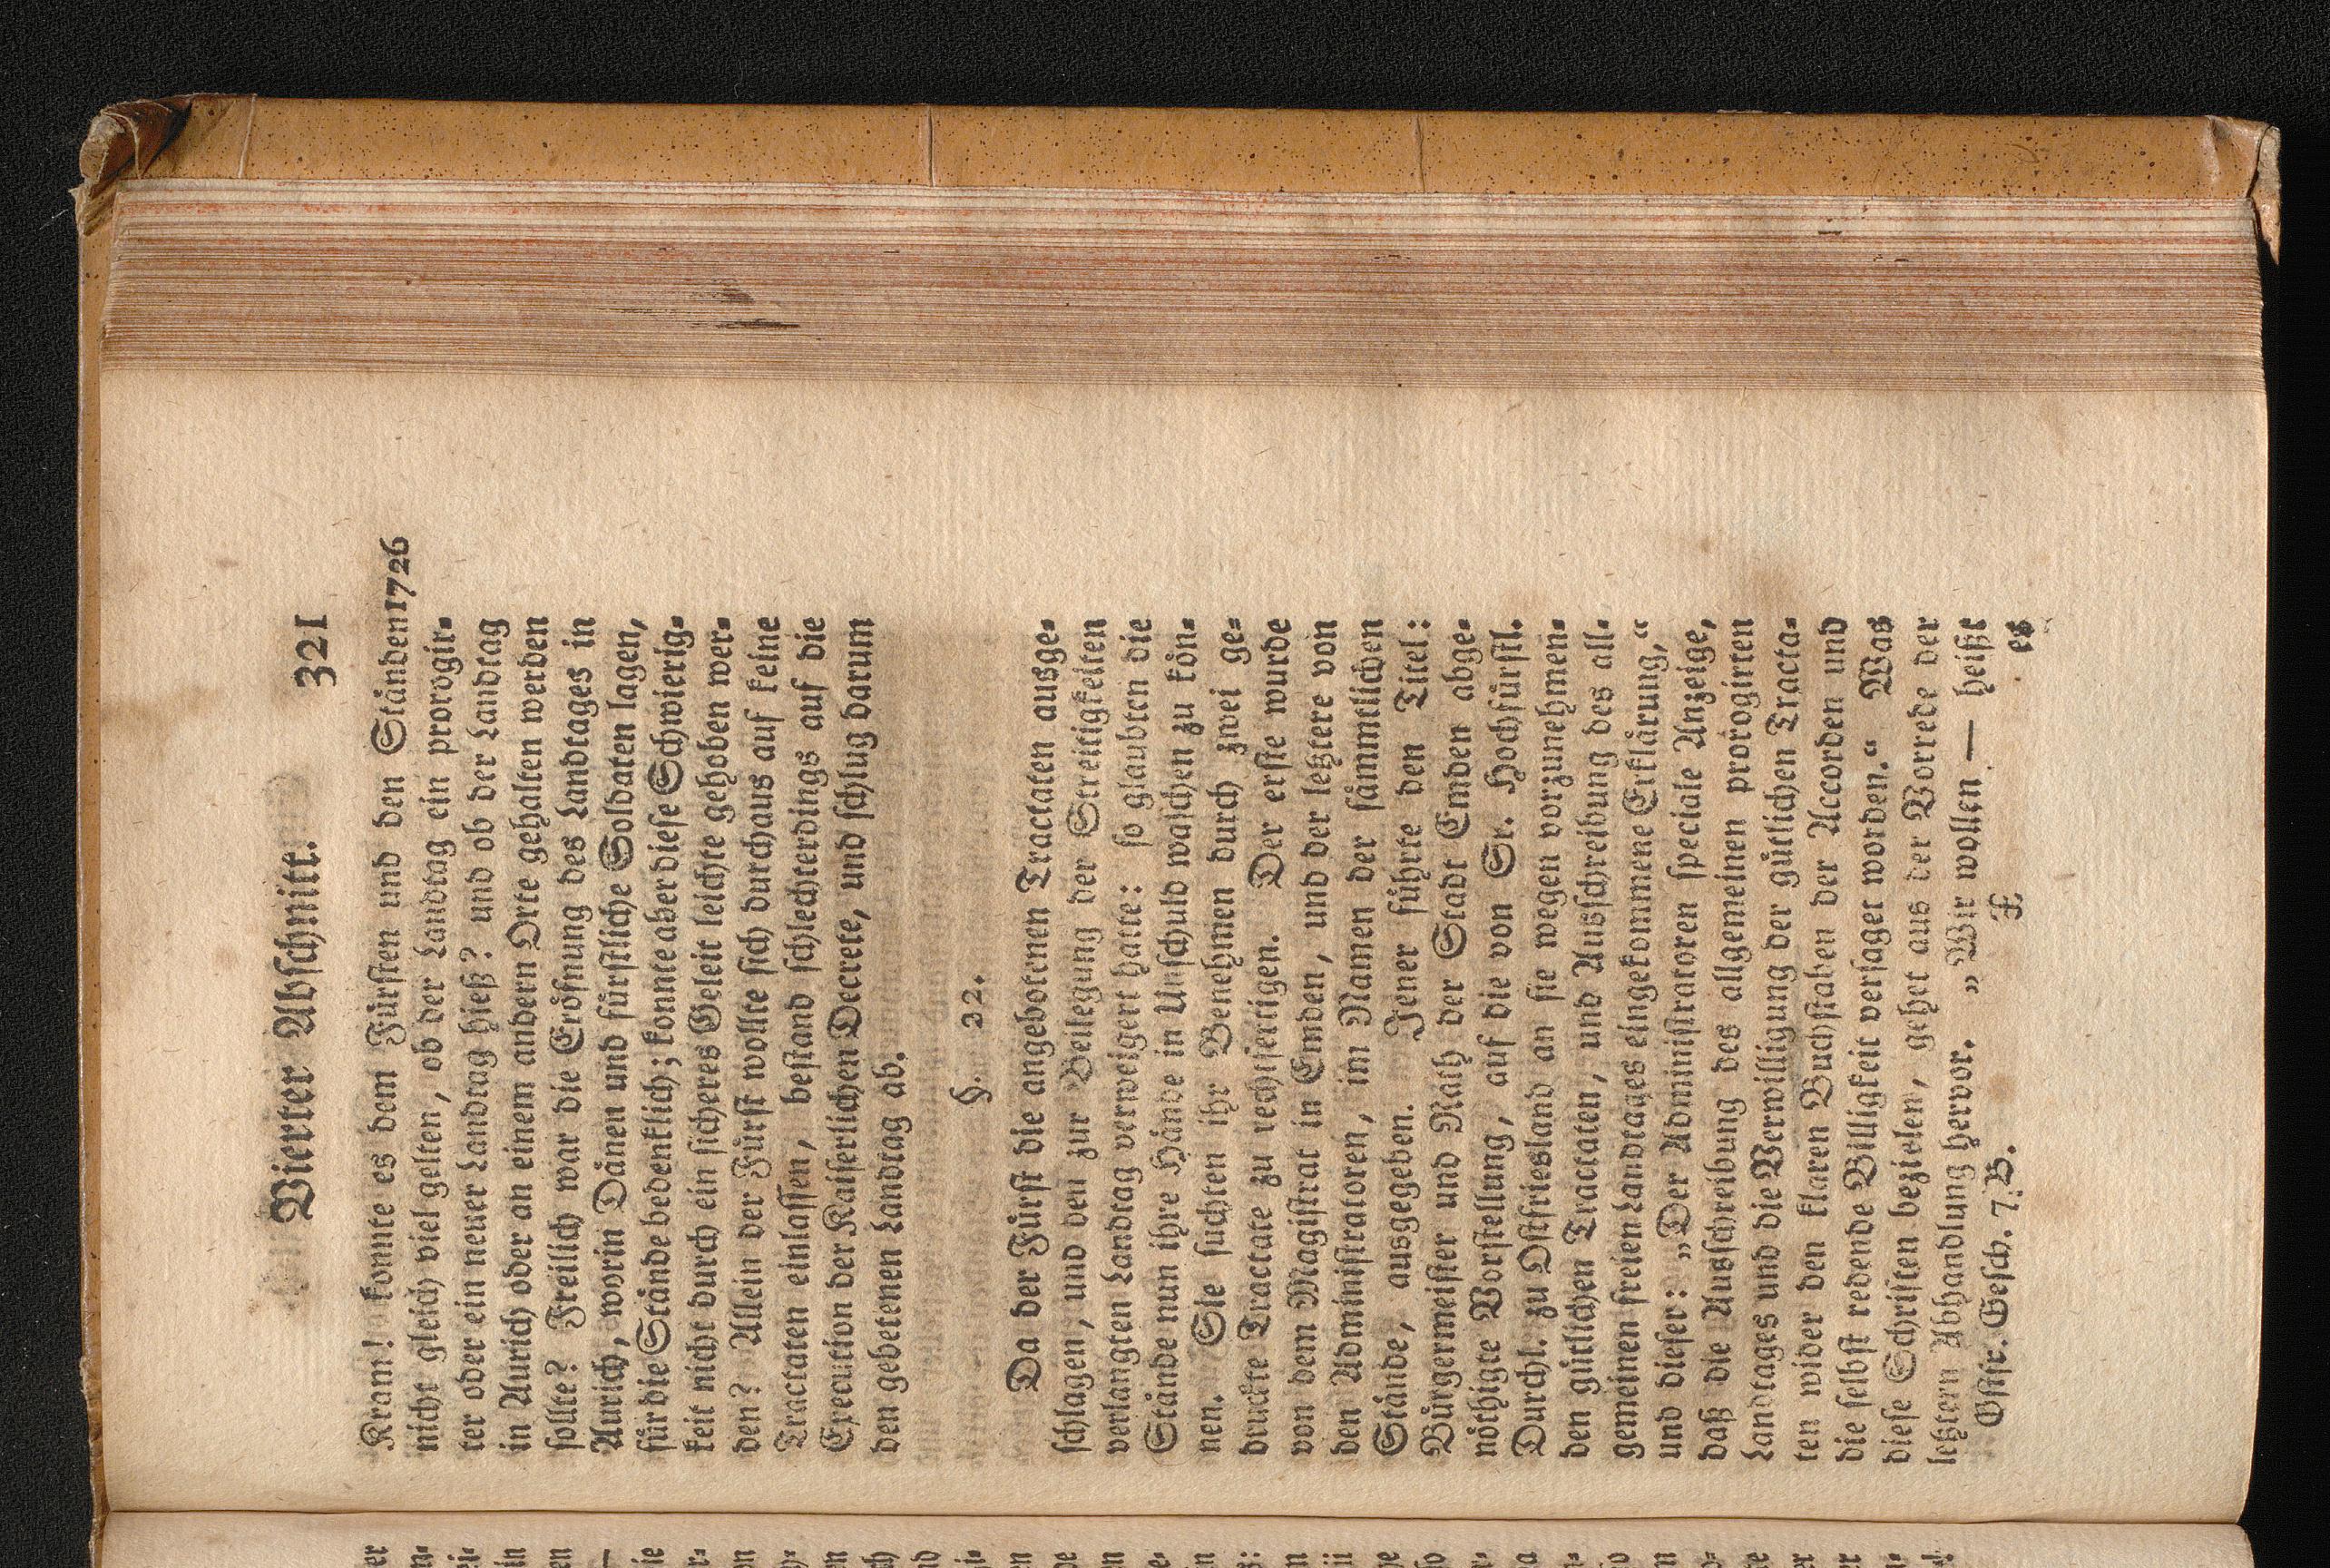 Vierter Abschnitt. 321
Kram! konnte es dem Fürsten und den Ständen 1726
nicht gleich viel gelten, ob der Landtag ein prorogir-
ter oder ein neuer Landtag hieß? und ob der Landtag
in Aurich oder an einem andern Orte gehalten werden
sollte? Freilich war die Eröfnung des Landtages in
Aurich, worin Dänen und fürstliche Soldaten lagen,
für die Stände bedenklich; konnte aber diese Schwierig-
keit nicht durch ein sicheres Geleit leichte gehoben wer-
den? Allein der Fürst wollte sich durchaus auf keine
Tractaten einlassen, bestand schlechterdings auf die
Execution der Kaiserlichen Decrete, und schlug darum
den gebetenen Landtag ab.
§. 22.
Da der Fürst die angebotenen Tractaten ausge-
schlagen, und den zur Beilegung der Streitigkeiten
verlangten Landtag verweigert hatte: so glaubten die
Stände nun ihre Hände in Unschuld waschen zu kön-
nen. Sie suchten ihr Benehmen durch zwei ge-
druckte Tractate zu rechtfertigen. Der erste wurde
von dem Magistrat in Emden, und der letztere von
den Administratoren, im Namen der sämmtlichen
Stände, ausgegeben. Jener führte den Titel:
Bürgermeister und Rath der Stadt Emden abge-
nöthigte Vorstellung, auf die von Sr. Hochfürstl.
Durchl. zu Ostfriesland an sie wegen vorzunehmen-
den gütlichen Tractaten, und Ausschreibung des all-
gemeinen freien Landtages eingekommene Erklärung,“
und dieser: „Der Administratoren speciale Anzeige,
daß die Ausschreibung des allgemeinen prorogirten
Landtages und die Verwilligung der gütlichen Tracta-
ten wider den klaren Buchstaben der Accorden und
die selbst redende Billigkeit versaget worden.“ Was
diese Schriften bezielen, gehet aus der Vorrede der
letztern Abhandlung hervor. „Wir wollen — heißt
Ostfr. Gesch. 7. B. X es